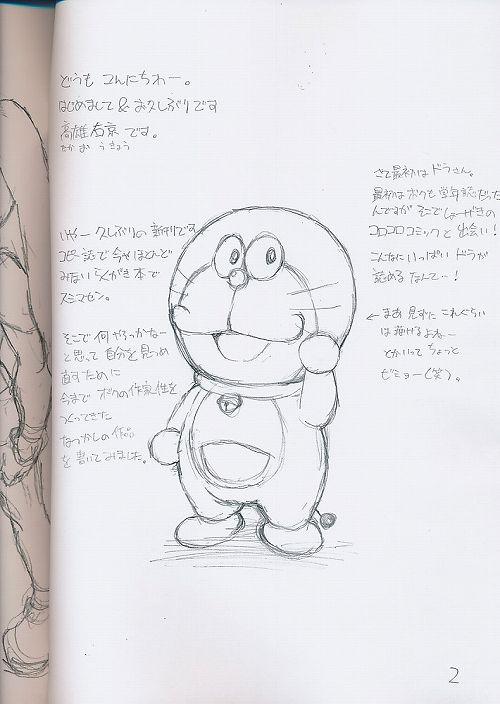 どうも こんにちわー。
はじめまして & お久しぶりです
高雄右京 です。
たか お うきょう
いやー 久しぶりの 新刊です
コピー誌で 今やほとんど
みない らくがき本で
スミマセン。
そこで 何やろっかなー
と思って 自分を見つめ
直すために
今まで ボクの作家性を
つくってきた
なつかしの作品
を書いてみました。
さて最初は ドラさん。
最初はボクも 学年誌だった
んですが そこでしょーげきの
コロコロコミックと出会い!
こんなに いっぱい ドラが
読めるなんて…!
← まあ 見ずに これぐらい
は描けるよねー
とかいって ちょっと
ビミョー(笑)。
2